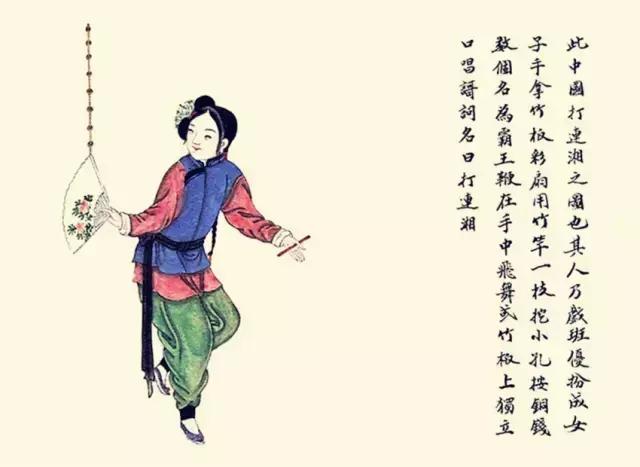 此中國打連湘之圖也其人乃戲班優扮成女
子手拿竹板彩扇用竹竿一枝挖小孔按銅錢
數個名為霸王鞭在手中飛舞或竹板上獨立
口唱謌詞名曰打連湘